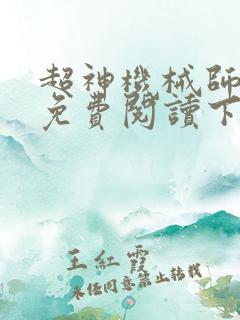 超神機械師
免費閱讀下
王紅霞
未经同意禁止转载